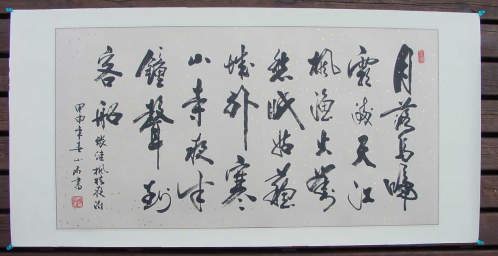 月落烏啼
霜滿天江
楓漁火對
愁眠姑蘇
城外寒
山寺夜半
鐘聲到
客船 張繼楓橋夜泊
甲申年春小 書